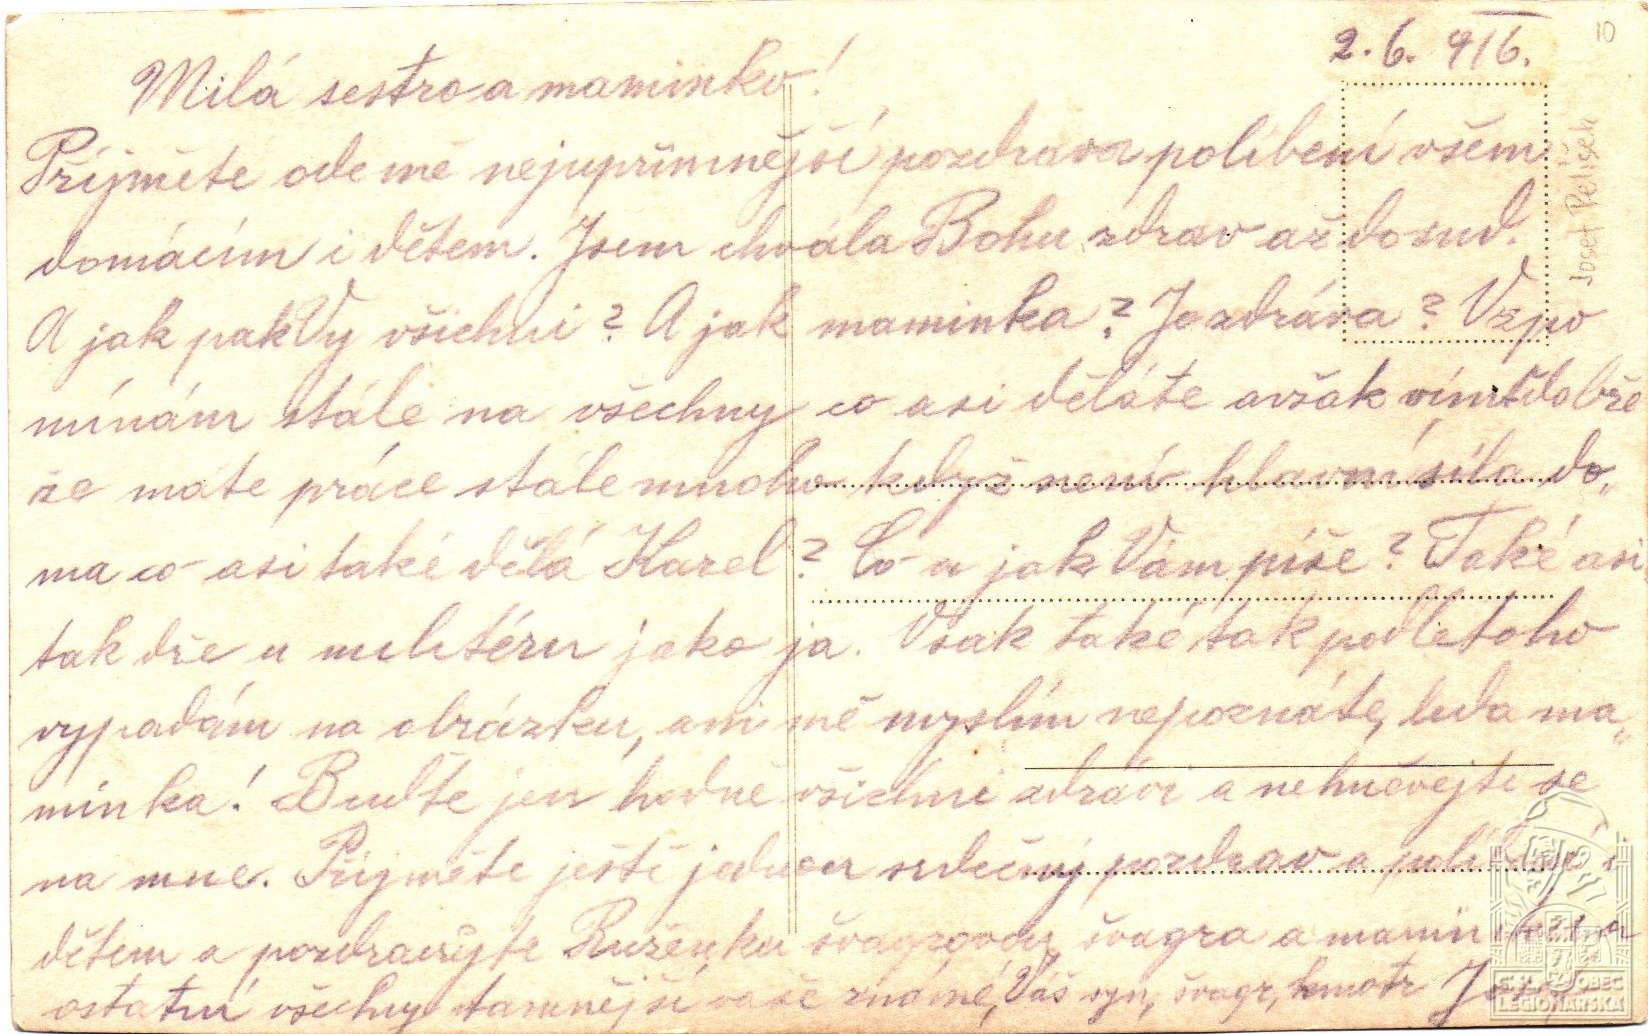 2. 6. 916.
10
Milá sestro a maminko!
Příjměte ode mě nejupřímnější pozdrav a políbení všem
domácím i dětem. Jsem chvála Bohu zdrav až dosud.
A jak pak Vy všichni? A jak maminka? Je zdráva? Vzpo
mínám stále na všechny co asi děláte avšak vím dobře
že máte práce stále mnoho když není hlavní síla do„
ma co asi také dělá Karel? Co a jak Vám píše? Také asi
tak dře u militéru jako ja. Však také tak podle toho
vypadám na obrázku, ani mě myslím nepoznáte, leda ma„
minka! Buďte jen hodně všichni zdrávi a nehněvejte se
na mne. Přijměte ještě jednou srdečný pozdrav a políbení i
dětem a pozdravujte Ruženku švagrovou, švagra a maminku a
ostatní všechny tamnější vaše známé, Váš syn, švagr, kmotr
Josef Pelíšek
ČSL. OBEC
LEGIONÁŘSKÁ